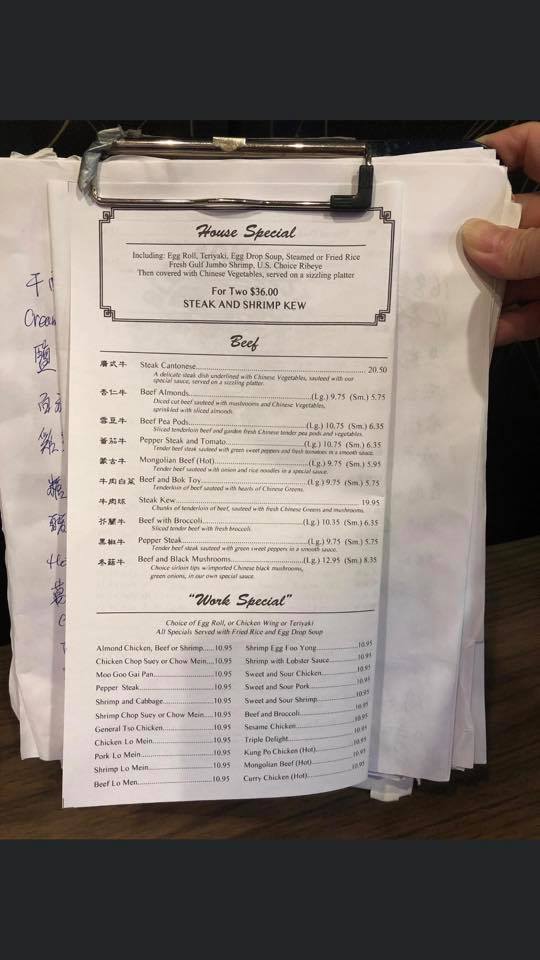 House Special
Including: Egg Roll, Teriyaki, Egg Drop Soup, Steamed or Fried Rice
Fresh Gulf Jumbo Shrimp, U.S. Choice Ribeye
Then covered with Chinese Vegetables, served on a sizzling platter
For Two $36.00
STEAK AND SHRIMP KEW
Beef
廣式牛 Steak Cantonese 20.50
A delicate steak dish underlined with Chinese Vegetables, sauteed with our
special sauce, served on a sizzling platter.
杏仁牛 Beef Almonds (Lg.) 9.75 (Sm.) 5.75
Diced cut beef sauteed with mushrooms and Chinese Vegetables,
sprinkled with sliced almonds.
雪豆牛 Beef Pea Pods (Lg.) 10.75 (Sm.) 6.35
Sliced tenderloin beef and garden fresh Chinese tender pea pods and vegetables.
蕃茄牛 Pepper Steak and Tomato (Lg.) 10.75 (Sm.) 6.35
Tender beef steak sauteed with green sweet peppers and fresh tomatoes in a smooth sauce.
蒙古牛 Mongolian Beef (Hot) (Lg.) 9.75 (Sm.) 5.95
Tender beef sauteed with onion and rice noodles in a special sauce.
牛肉白菜 Beef and Bok Toy (Lg.) 9.75 (Sm.) 5.75
Tenderloin of beef sauteed with hearts of Chinese Greens.
牛肉球 Steak Kew 19.95
Chunks of tenderloin of beef, sauteed with fresh Chinese Greens and mushrooms.
芥蘭牛 Beef with Broccoli (Lg.) 10.35 (Sm.) 6.35
Sliced tender beef with fresh broccoli.
黑椒牛 Pepper Steak (Lg.) 9.75 (Sm.) 5.75
Tender beef steak sauteed with green sweet peppers in a smooth sauce.
冬菇牛 Beef and Black Mushrooms (Lg.) 12.95 (Sm.) 8.35
Choice sirloin tips w/imported Chinese black mushrooms,
green onions, in our own special sauce.
"Work Special"
Choice of Egg Roll, or Chicken Wing or Teriyaki
All Specials Served with Fried Rice and Egg Drop Soup
Almond Chicken, Beef or Shrimp 10.95
Chicken Chop Suey or Chow Mein 10.95
Moo Goo Gai Pan 10.95
Pepper Steak 10.95
Shrimp and Cabbage 10.95
Shrimp Chop Suey or Chow Mein 10.95
General Tso Chicken 10.95
Chicken Lo Mein 10.95
Pork Lo Mein 10.95
Shrimp Lo Mein 10.95
Beef Lo Men 10.95
Shrimp Egg Foo Yong 10.95
Shrimp with Lobster Sauce 10.95
Sweet and Sour Chicken 10.95
Sweet and Sour Pork 10.95
Sweet and Sour Shrimp 10.95
Beef and Broccoli 10.95
Sesame Chicken 10.95
Triple Delight 10.95
Kung Po Chicken (Hot) 10.95
Mongolian Beef (Hot) 10.95
Curry Chicken (Hot) 10.95
干
Cream
鹽